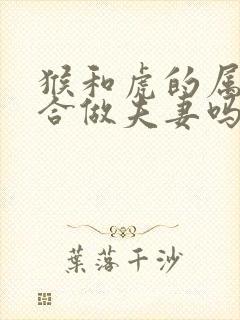 猴和虎的属
合做夫妻吗
葉落千沙